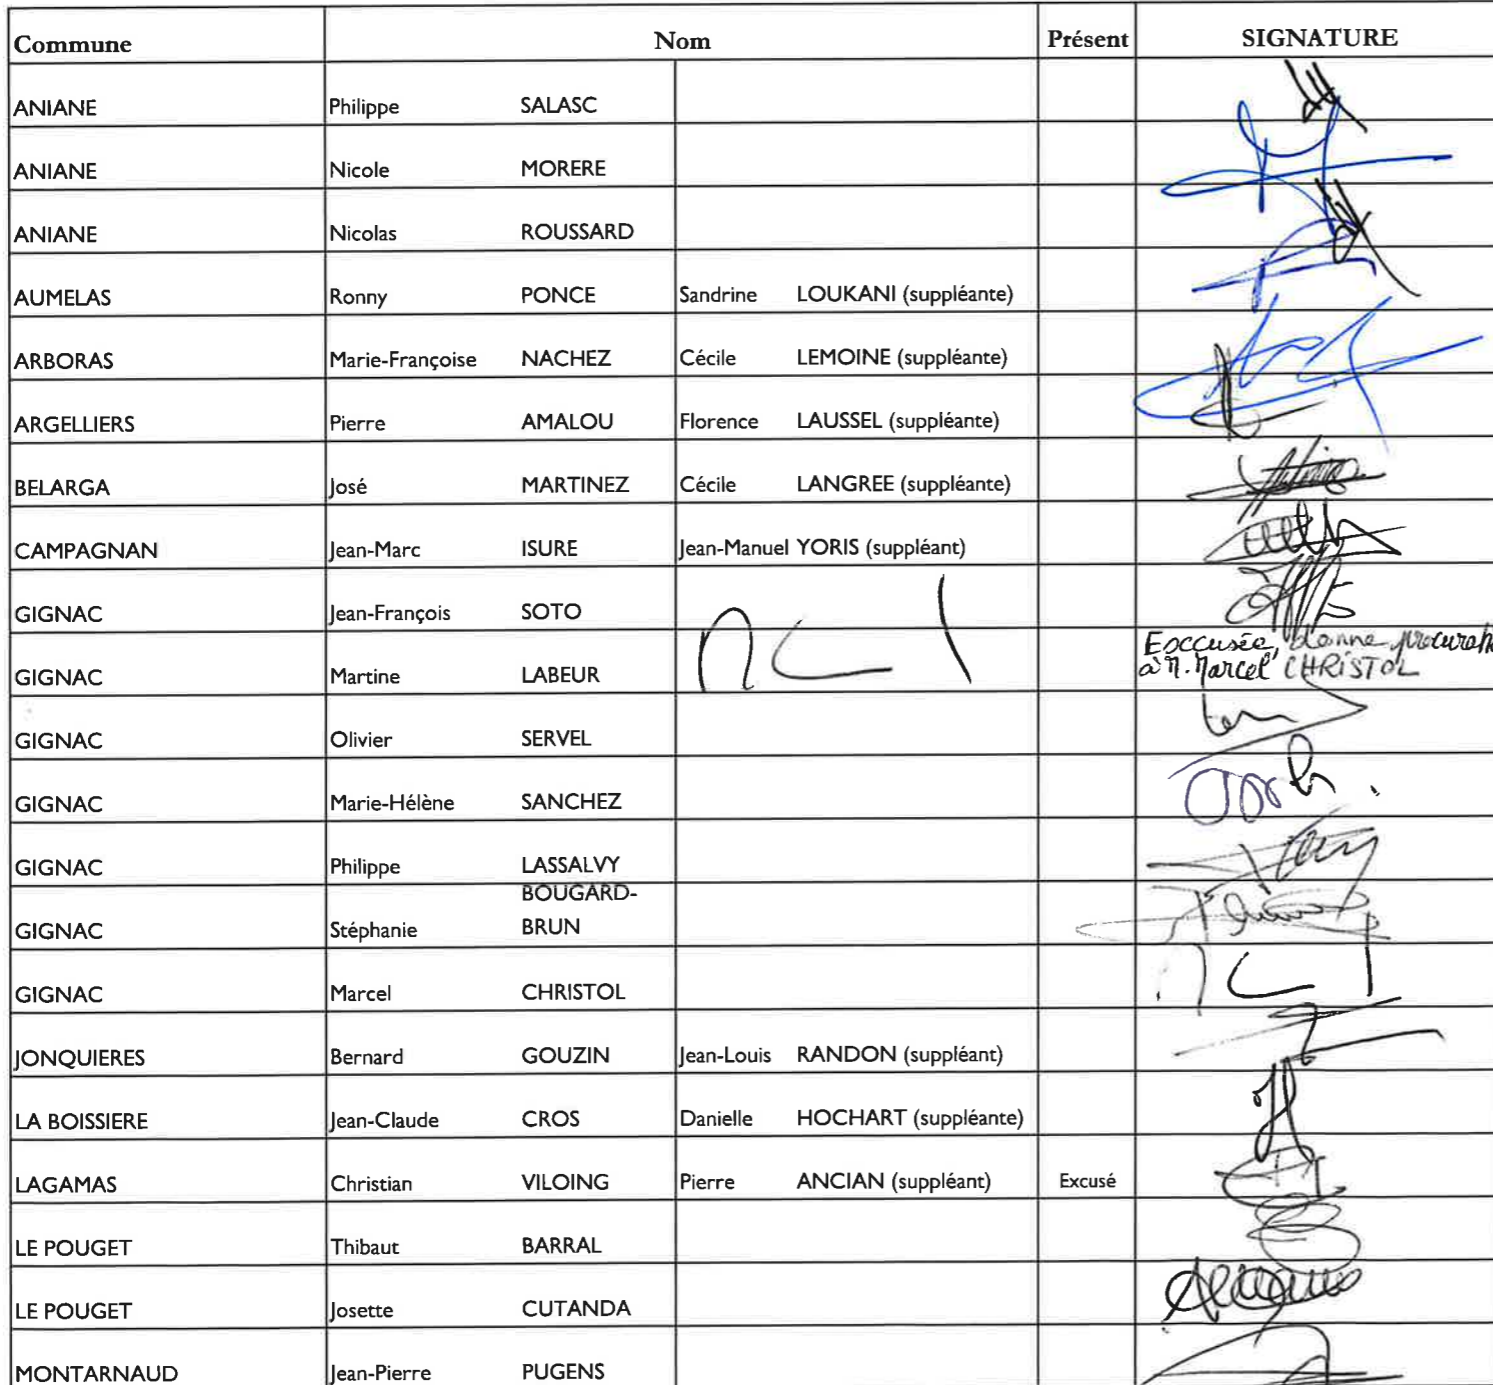 Commune Nom Présent SIGNATURE
ANIANE Philippe SALASC
ANIANE Nicole MORERE
ANIANE Nicolas ROUSSARD
AUMELAS Ronny PONCE Sandrine LOUKANI (suppléante)
ARBORAS Marie-Françoise NACHEZ Cécile LEMOINE (suppléante)
ARGELLIERS Pierre AMALOU Florence LAUSSEL (suppléante)
BELARGA José MARTINEZ Cécile LANGREE (suppléante)
CAMPAGNAN Jean-Marc ISURE Jean-Manuel YORIS (suppléant)
GIGNAC Jean-François SOTO
Excusée, donne procuration
GIGNAC Martine LABEUR à M. Marcel CHRISTOL
GIGNAC Olivier SERVEL
GIGNAC Marie-Hélène SANCHEZ
GIGNAC Philippe LASSALVY
BOUGARD-
GIGNAC Stéphanie BRUN
GIGNAC Marcel CHRISTOL
JONQUIERES Bernard GOUZIN Jean-Louis RANDON (suppléant)
LA BOISSIERE Jean-Claude CROS Danielle HOCHART (suppléante)
LAGAMAS Christian VILOING Pierre ANCIAN (suppléant) Excusé
LE POUGET Thibaut BARRAL
LE POUGET Josette CUTANDA
MONTARNAUD Jean-Pierre PUGENS